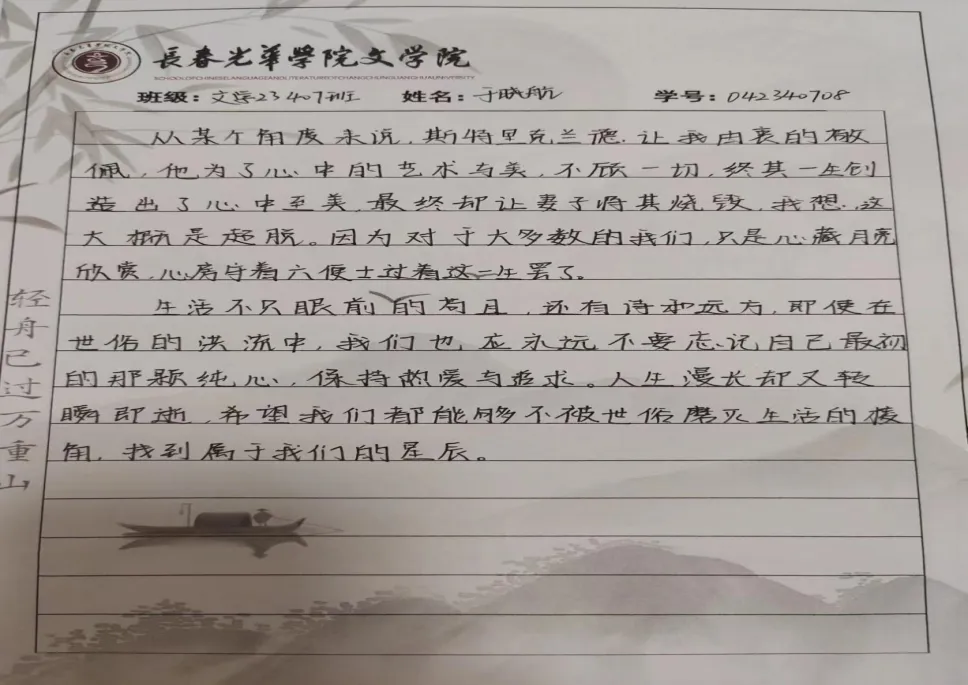 長春光華學院文学院
SCHOOL OF CHINESE LANGUAGE AND LITERATURE OF CHANGCHUN GUANGHUA UNIVERSITY
班级：文运23407班 姓名：于晓航 学号：042340708
从某个角度来说，斯特里克兰德.让我由衷的敬
佩，他为了心中的艺术与美，不顾一切，终其一生创
造出了心中至美，最终却让妻子将其烧毁，我想，这
大概是超脱。因为对于大多数的我们，只是心藏月亮
欣赏，心房守着六便士过着这一生罢了。
生活不只眼前的苟且，还有诗和远方，即使在
世俗的洪流中，我们也应永远不要忘记自己最初
的那颗纯心，保持热爱与追求。人生漫长却又转
瞬即逝，希望我们都能够不被世俗磨灭生活的棱
角，找到属于我们的星辰。
轻舟已过万重山